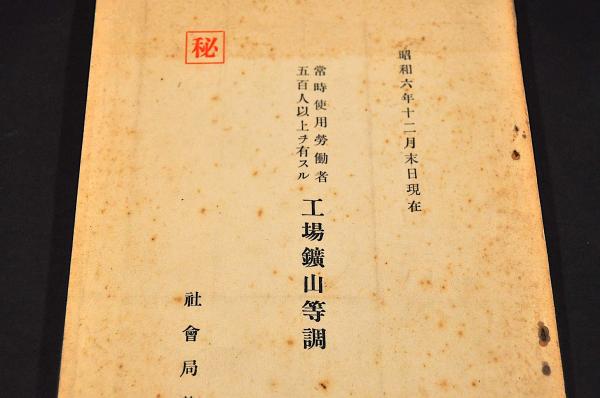 昭和六年十二月末日現在
常時使用勞働者
五百人以上ヲ有スル
工場鑛山等調
社會局
秘